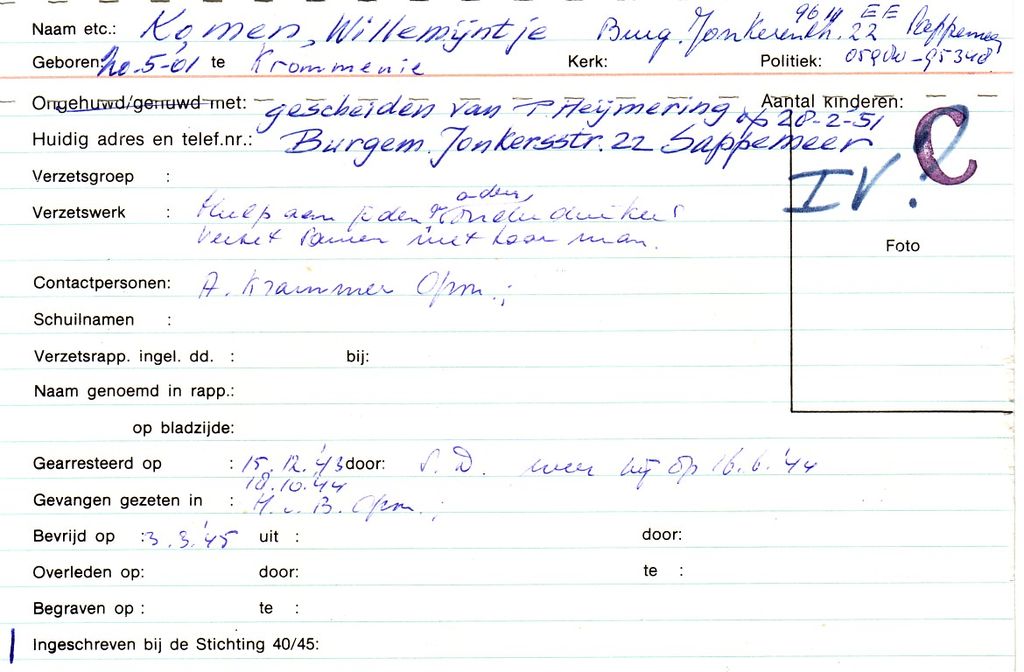 9611 EE
Naam etc.: Komen, Willemijntje Burg. Jonkerenstr. 22 Sappemeer
Geboren: 20-5-01 te Krommenie Kerk: Politiek: 05980-95348
Ongehuwd/gehuwd met: gescheiden van T Heijmering op 28-2-51 Aantal kinderen:
Huidig adres en telef.nr.: Burgem. Jonkersstr. 22 Sappemeer
C
IV.
Verzetsgroep :
Verzetswerk : Hulp aan joden, onderduikers
verzet samen met haar man.
Foto
Contactpersonen: A. Krammer Opm.;
Schuilnamen :
Verzetsrapp. ingel. dd. : bij:
Naam genoemd in rapp.:
op bladzijde:
Gearresteerd op : 15.12.'43 door: S.D. weer vrij op 16.6.'44
18.10.'44
Gevangen gezeten in : H.v.B. Opm.;
Bevrijd op : 3.3.'45 uit : door:
Overleden op: door: te :
Begraven op : te :
Ingeschreven bij de Stichting 40/45: